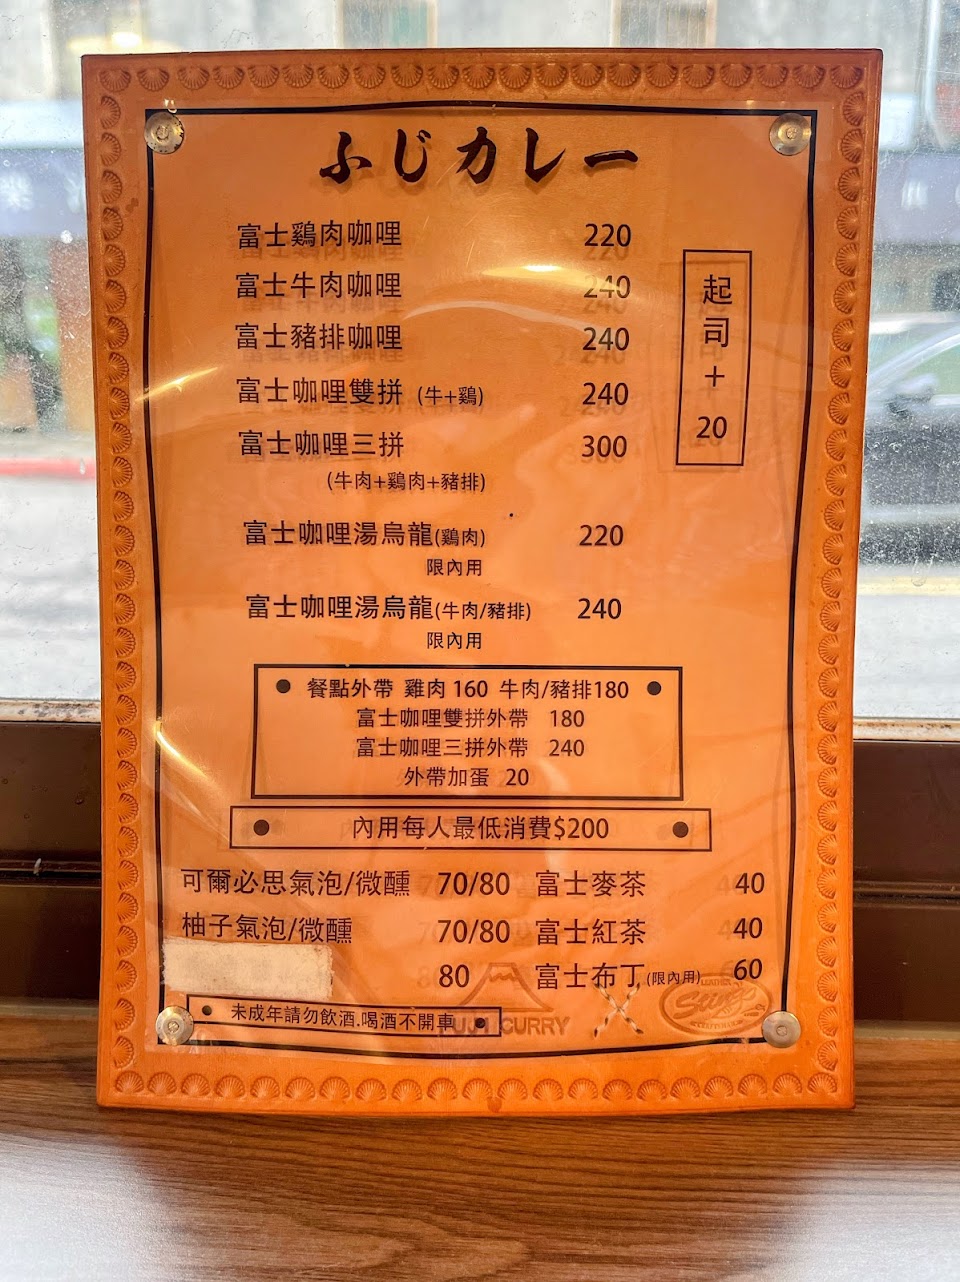 ふじカレー
富士鷄肉咖哩 220
富士牛肉咖哩 240
富士豬排咖哩 240
富士咖哩雙拼 (牛+鷄) 240
富士咖哩三拼 300
(牛肉+鷄肉+豬排)
起司+20
富士咖哩湯烏龍(鷄肉) 220
限內用
富士咖哩湯烏龍(牛肉/豬排) 240
限內用
● 餐點外帶 雞肉 160 牛肉/豬排180 ●
富士咖哩雙拼外帶 180
富士咖哩三拼外帶 240
外帶加蛋 20
● 內用每人最低消費$200 ●
可爾必思氣泡/微醺 70/80 富士麥茶 40
柚子氣泡/微醺 70/80 富士紅茶 40
80 富士布丁(限內用) 60
● 未成年請勿飲酒.喝酒不開車 ●
FUJI CURRY